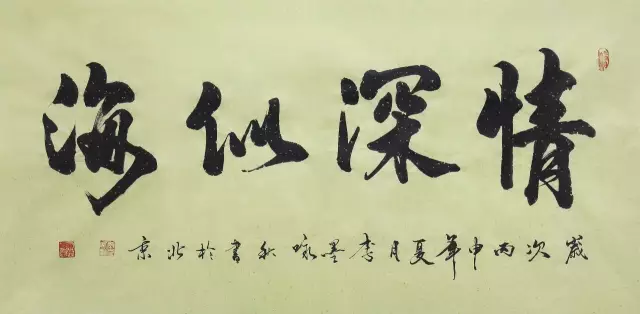 情深似海
歲次丙申年夏月李墨咏秋書於北京